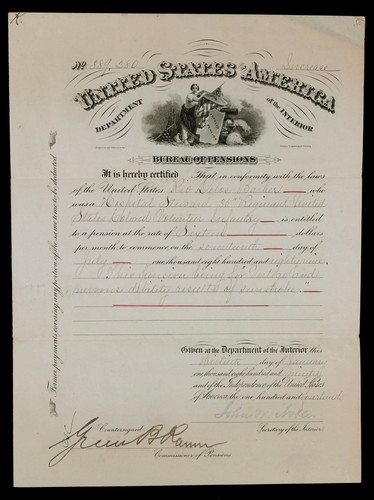 No 389,280 Increase
UNITED STATES OF AMERICA
DEPARTMENT of the INTERIOR
BUREAU OF PENSIONS
It is hereby certified That in conformity with the laws
of the United States who
was a Hospital Steward Regiment United
States Colored Infantry is entitled
to a pension at the rate of Sixteen dollars
per month to commence on the seventeenth day of
July one thousand eight hundred and eighty nine
This pension being for
nervous debility results of sunstroke.
Given at the Department of the Interior this
day of January
one thousand eight hundred and ninety
and of the Independence of the United States
of America the one hundred and fourteenth
John W. Noble
Countersigned, Secretary of the Interior.
Green B Raum
Commissioner of Pensions.